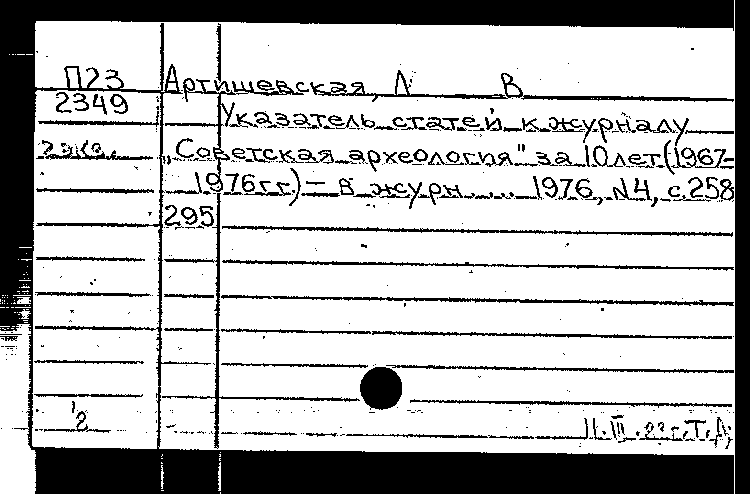 П23 Артишевская, Л В
2349 Указатель статей к журналу
2 экз. „Советская археология" за 10 лет (1967-
1976 гг.) – в журн.... 1976, №4, с. 258
295